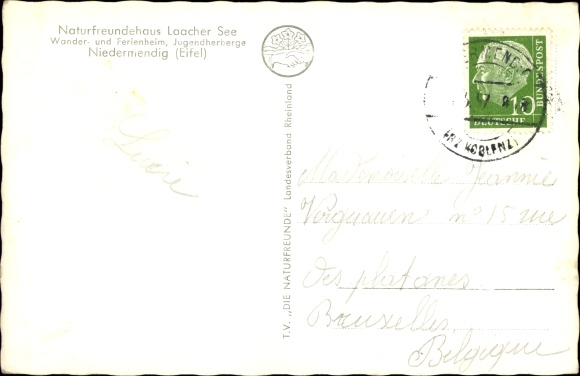 Naturfreundehaus Laacher See
Wander- und Ferienheim, Jugendherberge
Niedermendig (Eifel)
Lucie
T.V. „DIE NATURFREUNDE" Landesverband Rheinland
10
DEUTSCHE
BUNDESPOST
KOBLENZ)
Mademoiselle Jeannie
n° 15 rue
des platanes
Bruxelles
Belgique